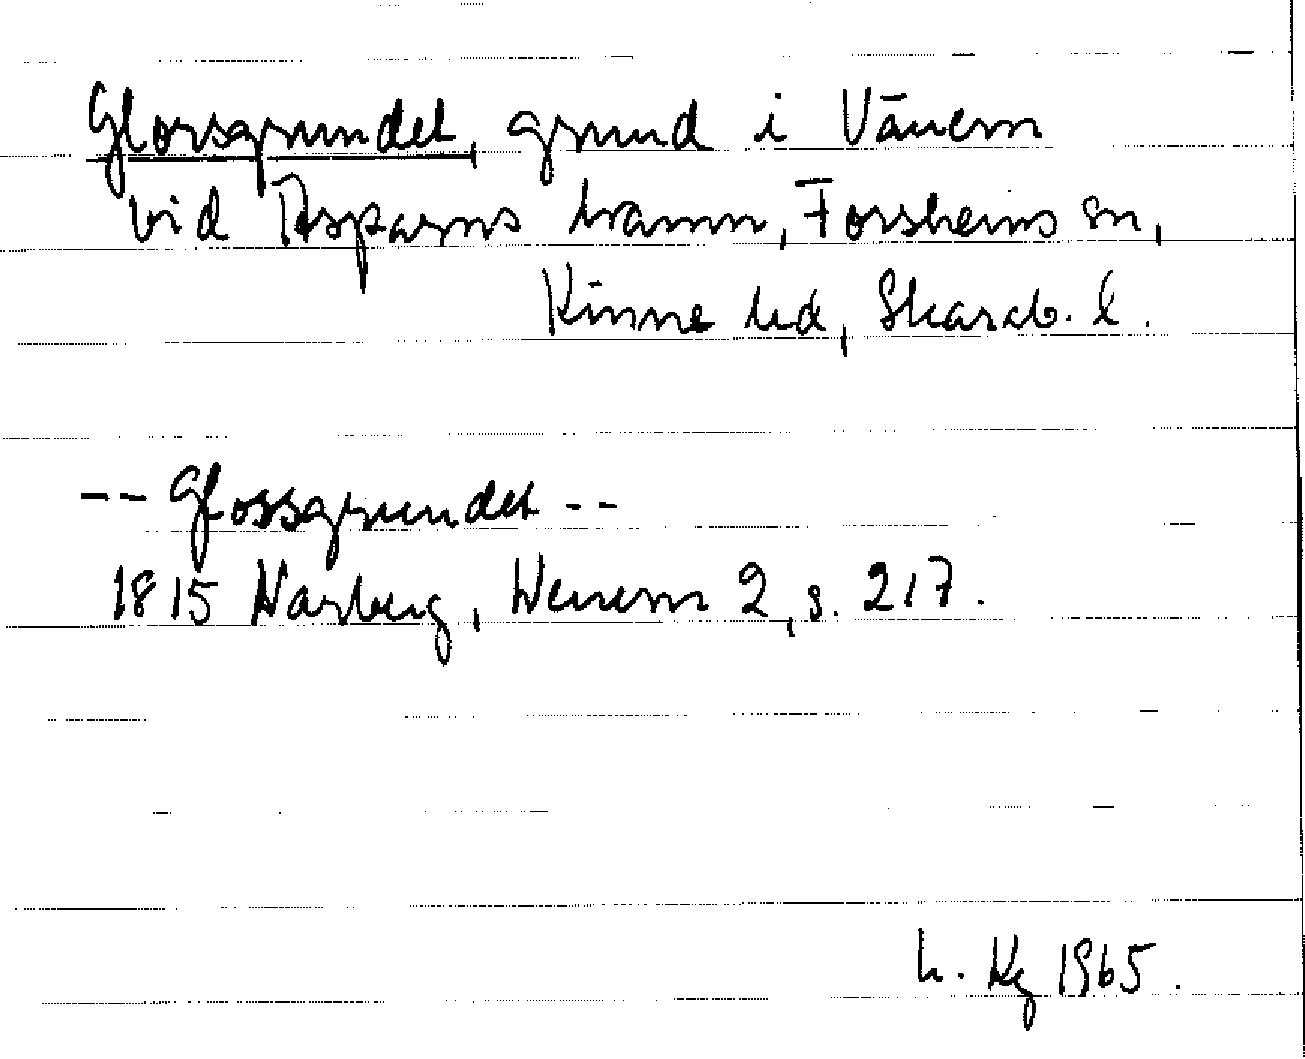 Glorsgrundet, grund i Vänern
vid Roparns hamn, Forshems sn,
Kinne hd, Skarab. l.
-- Glossgrundet --
1815 Warberg, Wenern 2, s. 217.
h. Kg 1965.